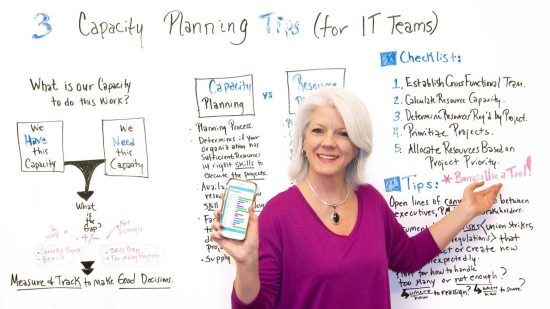 3 Capacity Planning Tips (for IT Teams)
What is our Capacity
to do this Work?
We
Have
this
Capacity
We
Need
this
Capacity
What
is the
Gap?
+/-
Too
many
Not
Enough
Bench
Skill Gap
Too many Projects
Measure & Track to make Good Decisions.
Capacity
Planning
vs
Resource
- Planning Process.
- Determines if your
Organization has
Sufficient Resources
w/ right Skills to
execute the projects.
Supply
Checklist:
1. Establish Cross Functional Team.
2. Calculate Resource Capacity.
3. Determine Resources Req'd by Project.
4. Prioritize Projects.
5. Allocate Resources Based on
Project Priority.
* Bonus: Use a Tool!
Tips:
Open lines of between
executives,
(union strikes,
regulations) that
or create new
for how to handle
too many or not enough?
where
how to reassign?
where
how to